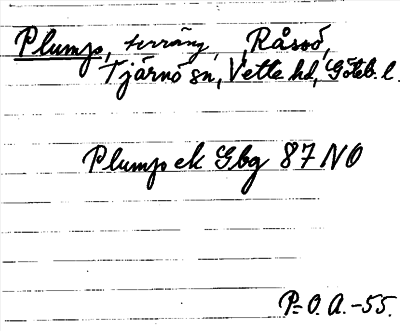 Plump, terräng, Råssö,
Tjärnö sn, Vette hd, Göteb. l.
Plump ek Gbg 87 NO
P-O. A. -55.